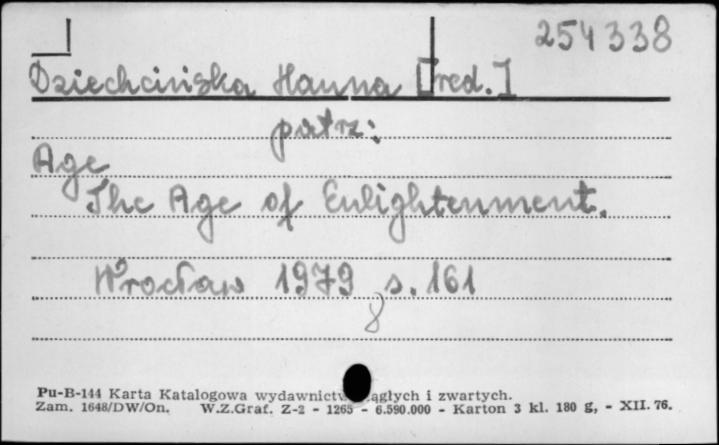 254338
Dziechcińska Hanna [red.]
patrz:
Age
The Age of Enlightenment.
Wrocław 1979 s. 161
8
Pu-B-144 Karta Katalogowa wydawnictw ciągłych i zwartych.
Zam. 1648/DW/On. W.Z.Graf. Z-2 - 1265 - 6.590.000 - Karton 3 kl. 180 g, - XII. 76.